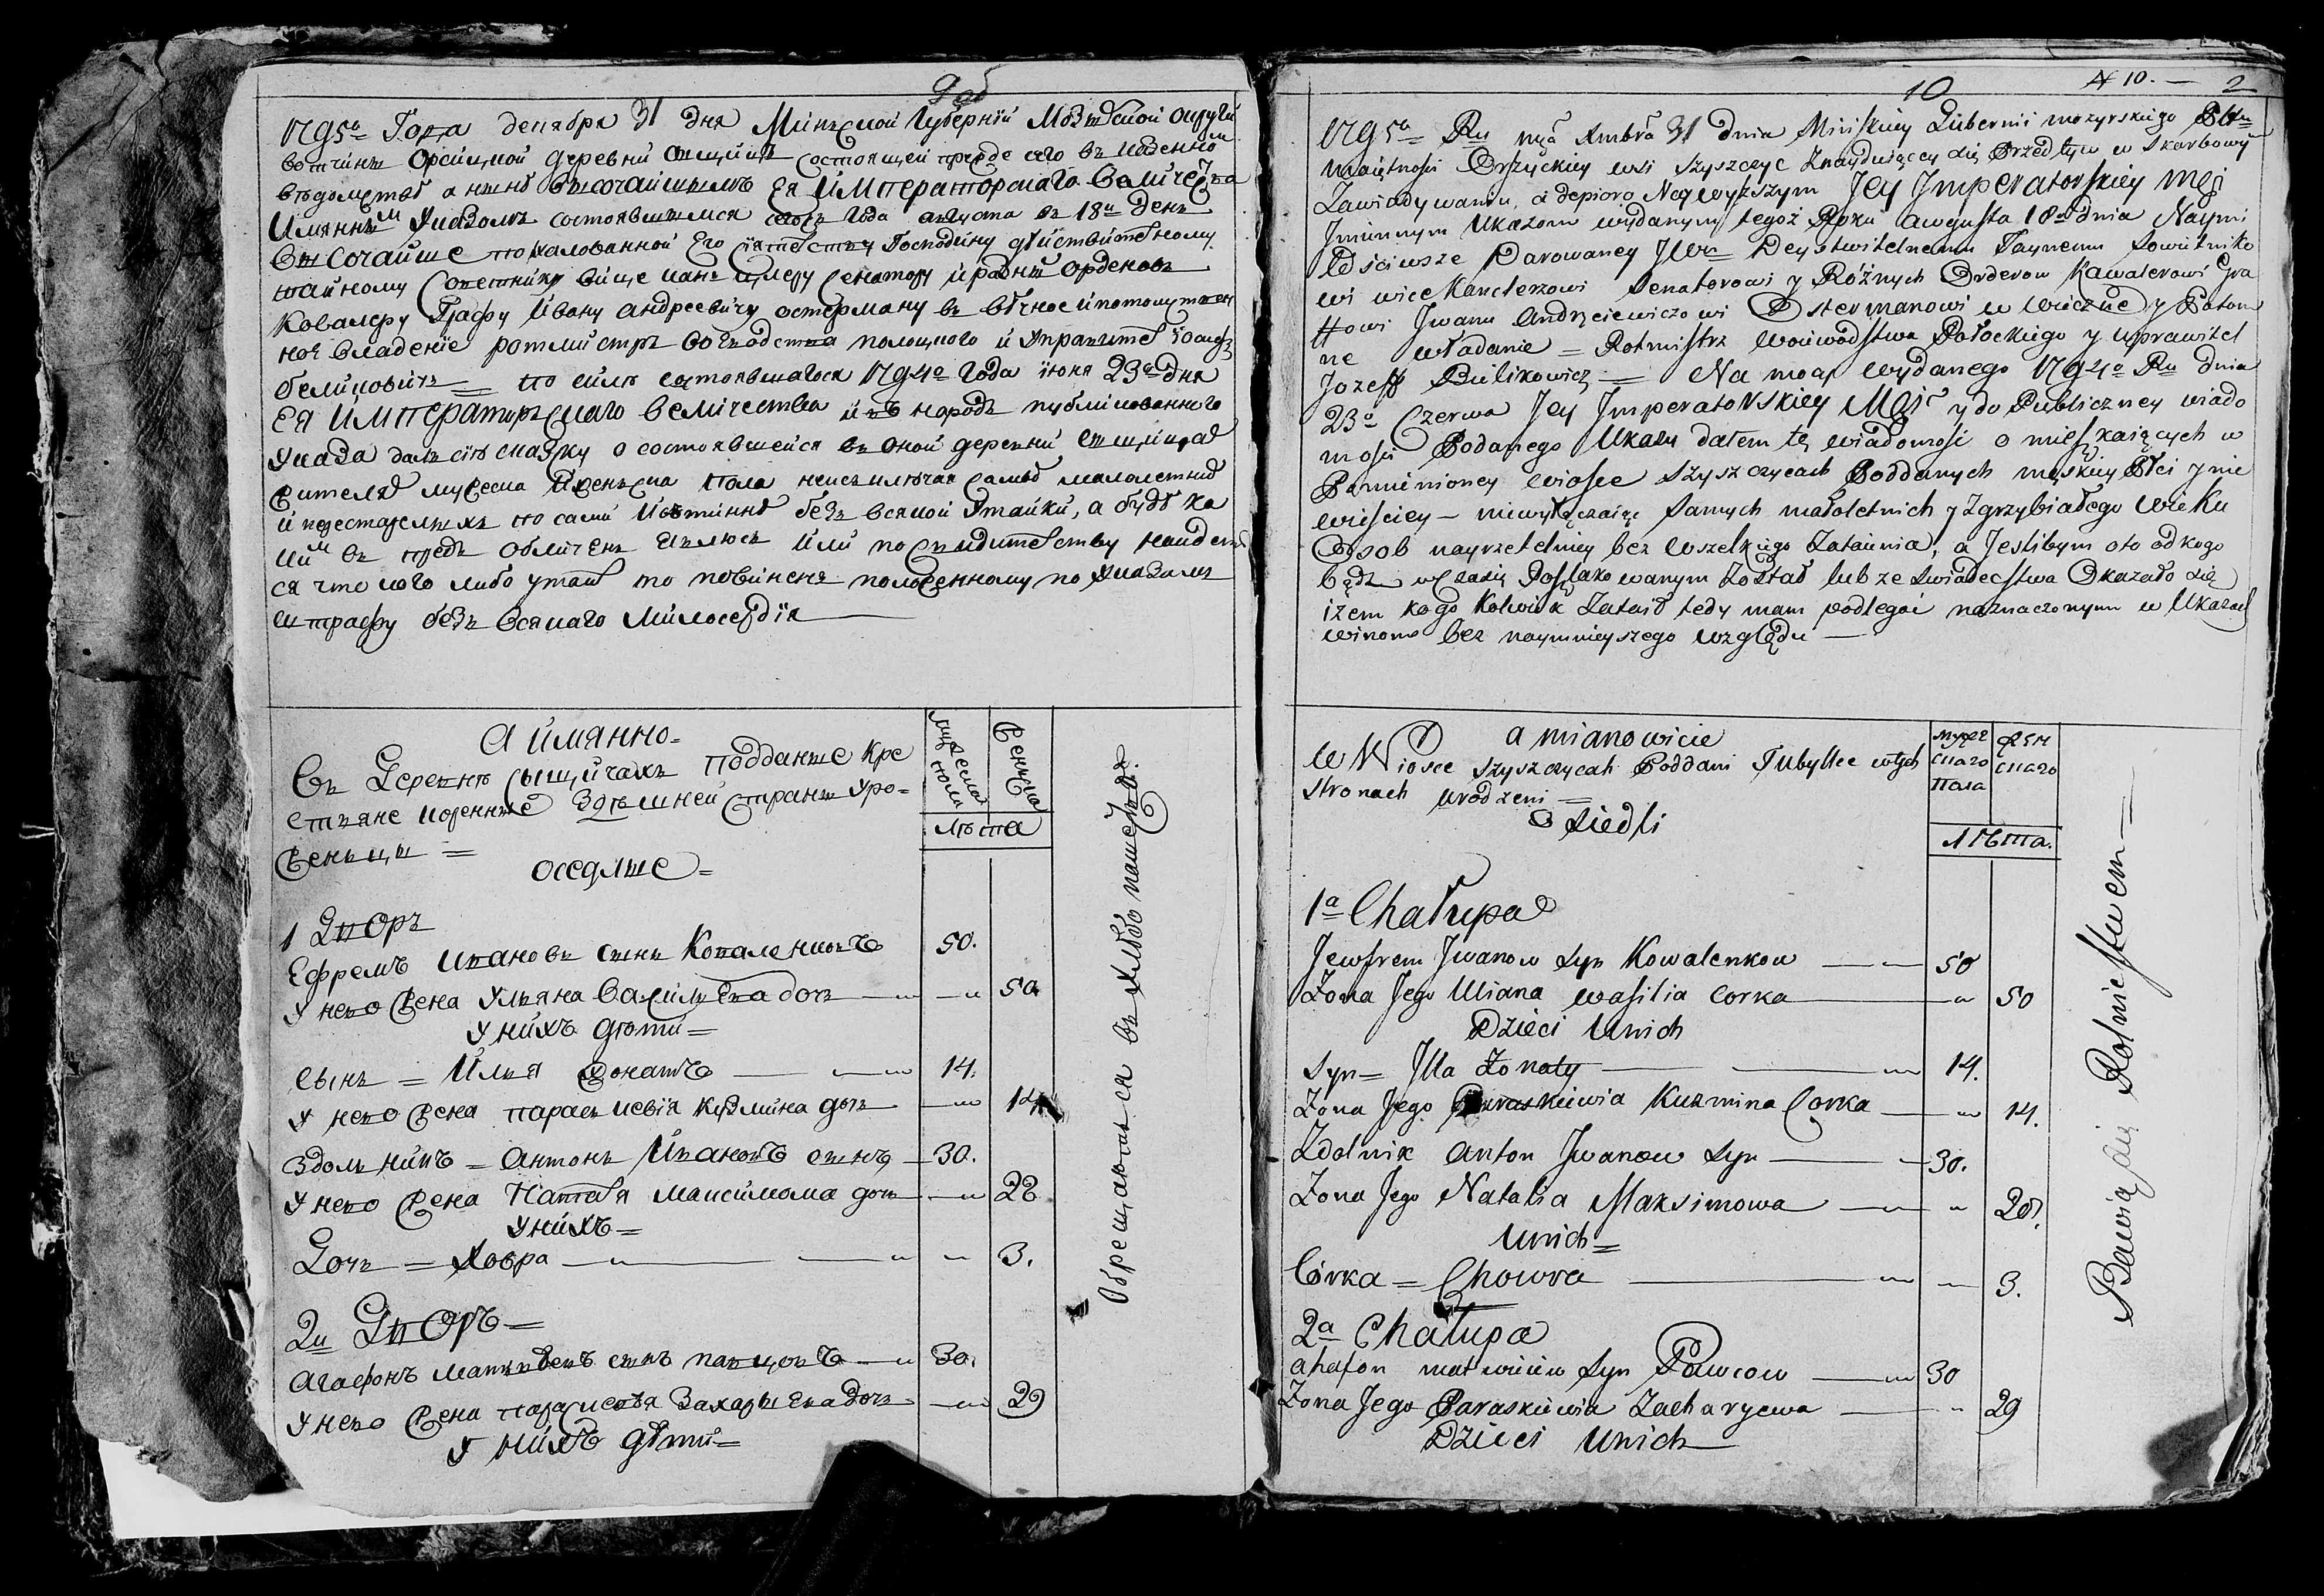 9об
1795го Года декабря 31 дня Минъской Губерніи Мозырской округи
вотчины деревни состоящей прежде сего въ казенном
ведомстве а ныне высочайшимъ Ея Императорскаго Величества
Имяннымъ Указомъ состоявшимся сего года августа въ 18й день
Высочайше пожалованной Его Сіятельству Господину действительному
тайному Советнику вице канцлеру сенатору и разных орденовъ
Ковалеру Графу Ивану андреевичу остерману въ вечное и потомствен
ное владеніе ротмистръ воеводства полоцкаго и управитель
беликовичъ = по силе состоявшагося 1794го года іюня 23го дня
Ея Императорскаго Величества въ народъ публикованнаго
Указа далъ сію скаску о состоявшейся въ оной деревни
жителяхъ мужеска и женска пола неисключая самыхъ малолетныхъ
и престарелыхъ по самой истинне безъ всякой утайки, а буде кем
въ предь обличенъ или по свидительству найдет
ся что кого либо утаилъ то повиненъ положенному по указамъ
штрафу безъ всякаго милосердія
А Имянно=
Въ Деревне Сыщичахъ подданые кре
стьяне коренные здешней страны уро=
женцы =
оседлые=
мужеска пола
женска
лета
1 Дворъ
Ефремъ Ивановъ сынъ Коваленковъ 50.
у него жена Ульяна Васильева дочь 50
у нихъ дети=
сынъ = Илья женатъ 14.
у него жена параскевія кузмина дочь 14
здольникъ = антонъ Ивановъ сынъ 30.
у него жена Наталья максимова дочь 28
у нихъ=
Дочь = Ховра 3.
2й Дворъ=
агафонъ матвеевъ сынъ павцовъ 30.
у него жена параскевья захарьева дочь 29
у нихъ дети=
Обрещаются въ хлебопашестве.
10 № 10. 2
1795o Ru mca Xmbra 31 dnia Minskiey Gubernii mozyrskiego Pttu
maiętnosci Orzyckiey wsi szyszczyc znayduiącey się Przedtym w skarbowym
Zawiadywaniu, a depioro Naywyzszym Jey Imperatorskiey mci
Imiennym Ukazom wydanym tegoż Roku awgusta 18o dnia Naymi
łosciwsze Darowaney JWu Deystwitelnemu Taynemu Sowietniko
wi wice Kanclerzowi Senatorowi y Różnych Orderow Kawalerowi Gra
ffowi Iwanu Andrzeiewiczowi Ostermanowi w wieczne y Potom
ne władanie = Rotmistrz woiewodstwa Połockiego y uprawitel
Jozeff Bielikowicz = Na moc wydanego 1794o Ru dnia
23o Czerwa Jey Imperatorskiey Mci y do Publiczney wiado
mosci Podanego Ukazu dałem tę wiadomosć o mieszkaiących w
Pomienioney wiosce szyszczycach Poddanych męskiey Płci y nie
wiesciey — niewyłączaiąc samych małoletnich y zgrzybiałego wieku
Osob nayrzetelniey bez wszelkiego Zataienia, a Jeslibym oto od kogo
bądz wczasie Poszlakowanym został lub ze swiadectwa Okazało się
iżem kogo Kolwiek Zataił tedy mam podlegać naznaczonym w Ukazach
winom bez naymnieyszego względu —
a mianowicie
w Wiosce szyszczycach Poddani Tubylce wtych
stronach urodzeni =
Osiedli
мужеска
го
пола
жен
скаго
Лѣта.
1a Chałupa
Jewfrem Iwanow syn Kowalenkow 50
Zona Jego Uliana wasilia corka 50
Dzieci Unich
syn = Illa żonaty 14.
Zona Jego Paraskiewia Kuzmina Corka 14.
Zdolnik Anton Iwanow syn 30.
Zona Jego Natalia Maksimowa 28.
Unich=
Córka = Chowra 3.
2a Chałupa
ahafon matwieiew syn Pawcow 30
Zona Jego Paraskiewia Zacharyewa 29
Dzieci Unich
Bawią się Rolnictwem —